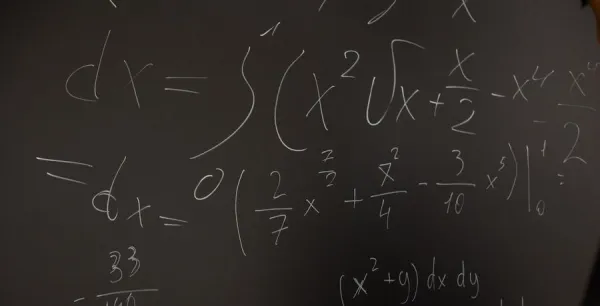 dx = ∫ 1 0 (x² √x + x/2 - x⁴ - x⁴/2
= dx = (2/7 x^7/2 + x²/4 - 3/10 x⁵) | 1 0 =
- 33
(x² + y) dx dy